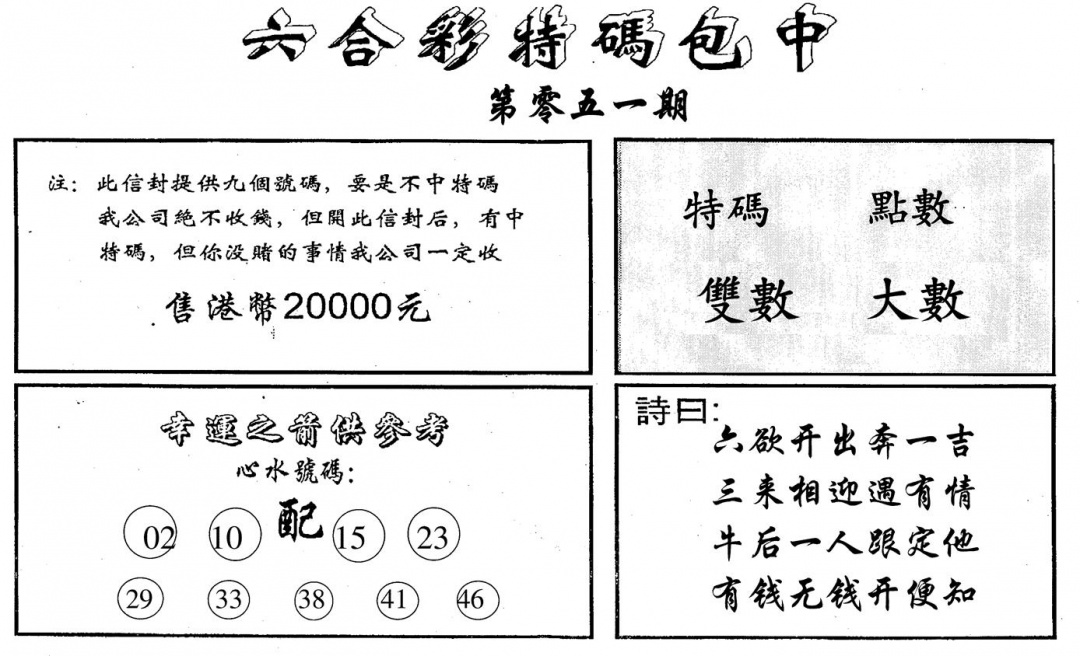 六合彩特碼包中
第零五一期
注：此信封提供九個號碼，要是不中特碼
我公司絕不收錢，但開此信封后，有中
特碼，但你没賭的事情我公司一定收
售港幣20000元
特碼 點數
雙數 大數
幸運之箭供參考
心水號碼：
配
02 10 15 23
29 33 38 41 46
詩曰：
六欲开出奔一吉
三来相迎遇有情
牛后一人跟定他
有钱无钱开便知